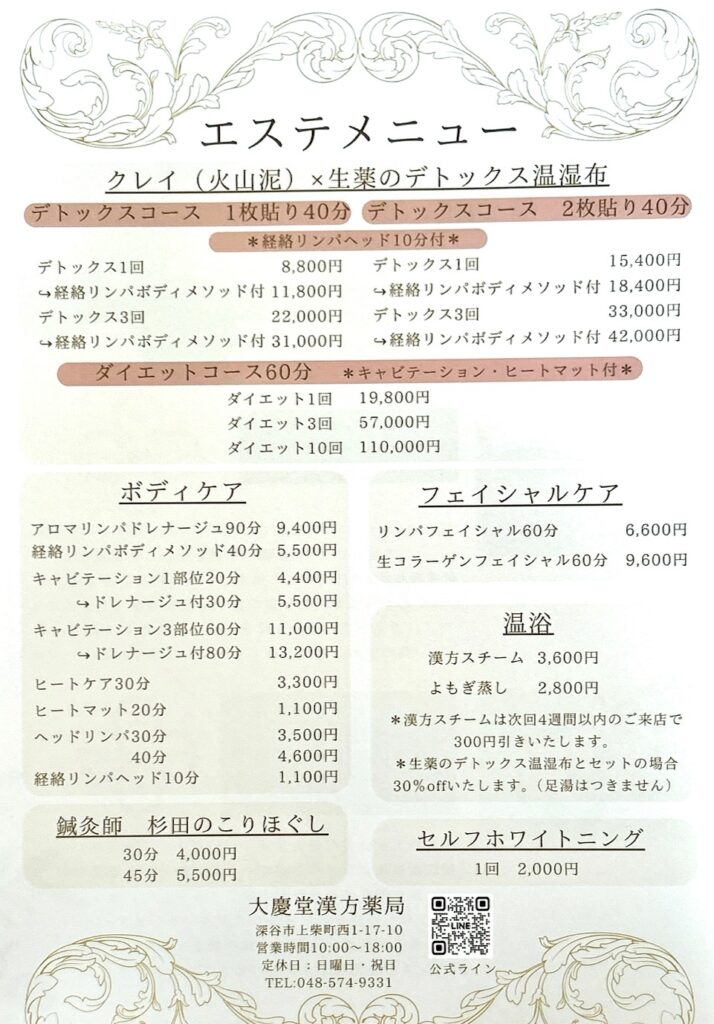 エステメニュー
クレイ（火山泥）×生薬のデトックス温湿布
デトックスコース 1枚貼り40分
デトックスコース 2枚貼り40分
＊経絡リンパヘッド10分付＊
デトックス1回 8,800円
↪経絡リンパボディメソッド付 11,800円
デトックス3回 22,000円
↪経絡リンパボディメソッド付 31,000円
デトックス1回 15,400円
↪経絡リンパボディメソッド付 18,400円
デトックス3回 33,000円
↪経絡リンパボディメソッド付 42,000円
ダイエットコース60分 ＊キャビテーション・ヒートマット付＊
ダイエット1回 19,800円
ダイエット3回 57,000円
ダイエット10回 110,000円
ボディケア
アロマリンパドレナージュ90分 9,400円
経絡リンパボディメソッド40分 5,500円
キャビテーション1部位20分 4,400円
↪ドレナージュ付30分 5,500円
キャビテーション3部位60分 11,000円
↪ドレナージュ付80分 13,200円
ヒートケア30分 3,300円
ヒートマット20分 1,100円
ヘッドリンパ30分 3,500円
40分 4,600円
経絡リンパヘッド10分 1,100円
フェイシャルケア
リンパフェイシャル60分 6,600円
生コラーゲンフェイシャル60分 9,600円
温浴
漢方スチーム 3,600円
よもぎ蒸し 2,800円
＊漢方スチームは次回4週間以内のご来店で
300円引きいたします。
＊生薬のデトックス温湿布とセットの場合
30%offいたします。（足湯はつきません）
鍼灸師 杉田のこりほぐし
30分 4,000円
45分 5,500円
セルフホワイトニング
1回 2,000円
大慶堂漢方薬局
深谷市上柴町西1-17-10
営業時間10:00〜18:00
定休日：日曜日・祝日
TEL:048-574-9331
LINE
公式ライン